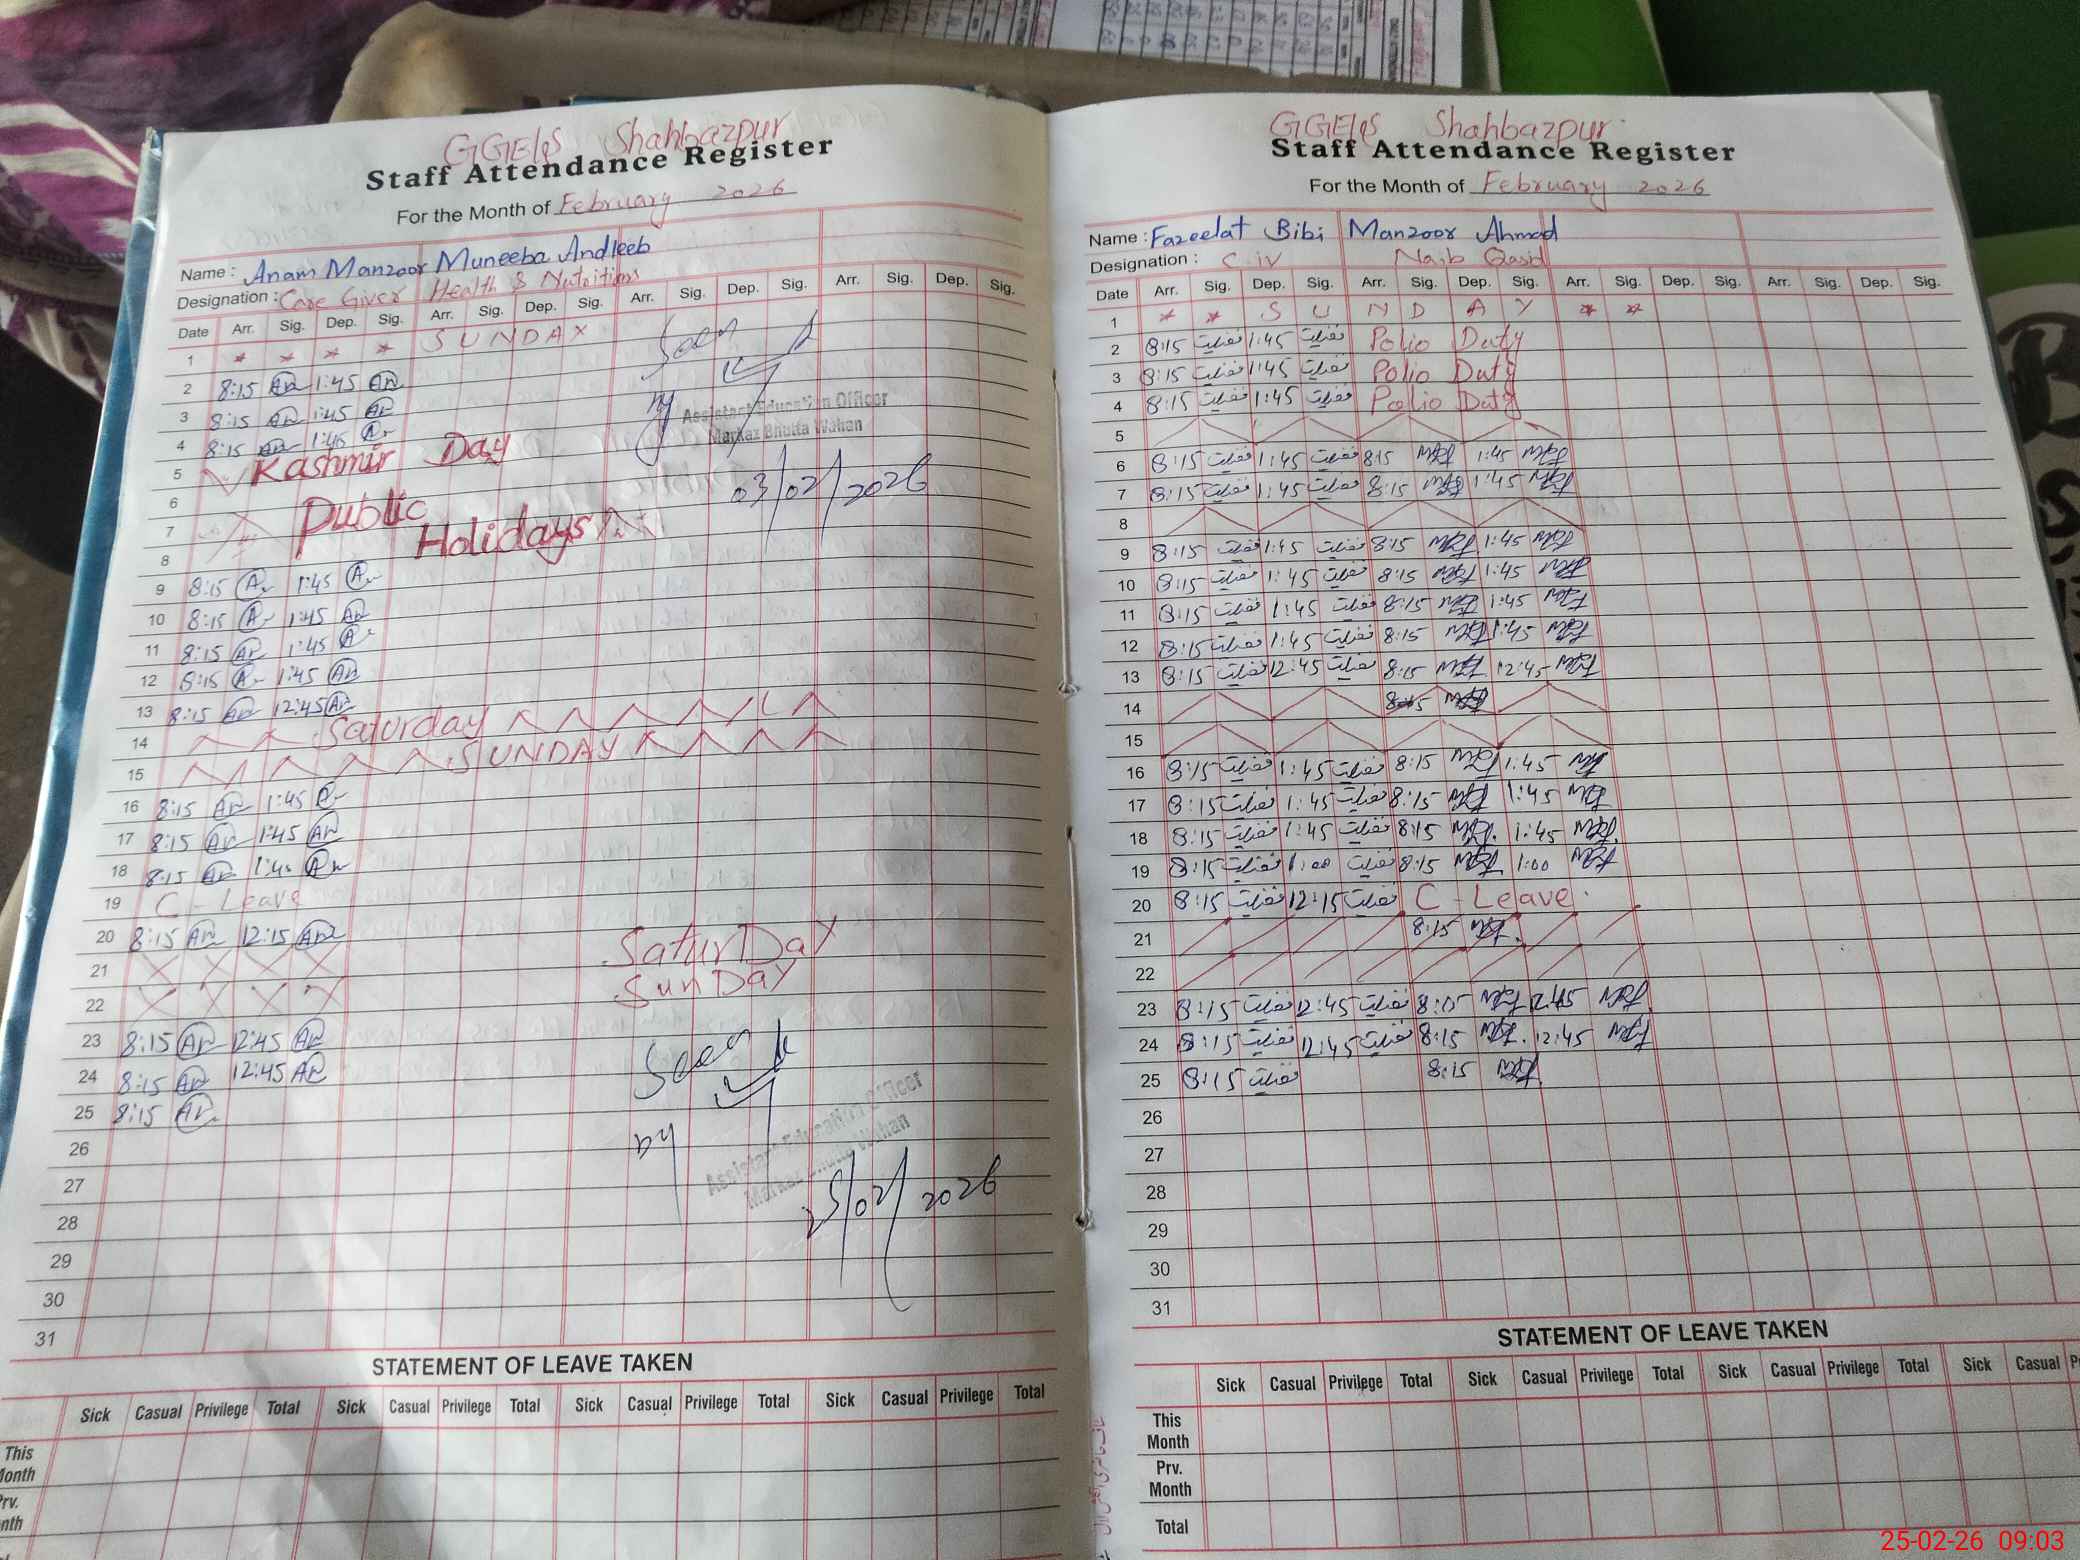 GGElS Shahbazpur
Staff Attendance Register
For the Month of February 2026
Name : Anam Manzoor Muneeba Andleeb
Designation : Care Giver Health & Nutritions
Date Arr. Sig. Dep. Sig. Arr. Sig. Dep. Sig. Arr. Sig. Dep. Sig. Arr. Sig. Dep. Sig.
1 * * * * SUNDAY
2 8:15 An 1:45 An
3 8:15 An 1:45 An
4 8:15 An 1:45 An
5 Kashmir Day
6 Public
7 Holidays
8
9 8:15 An 1:45 An
10 8:15 An 1:45 An
11 8:15 An 1:45 An
12 8:15 An 1:45 An
13 8:15 An 12:45 An
14 Saturday
15 SUNDAY
16 8:15 An 1:45 An
17 8:15 An 1:45 An
18 8:15 An 1:45 An
19 C - Leave
20 8:15 An 12:15 An
21 SaturDay
22 SunDay
23 8:15 An 12:45 An
24 8:15 An 12:45 An
25 8:15 An
26
27
28
29
30
31
Seen
by
Assistant Education Officer
Markaz Bhutta Wahan
03/02/2026
Seen
by
Assistant Education Officer
Markaz Bhutta Wahan
25/02/2026
STATEMENT OF LEAVE TAKEN
Sick Casual Privilege Total Sick Casual Privilege Total Sick Casual Privilege Total Sick Casual Privilege Total
This
Month
Prv.
Month
GGElS Shahbazpur
Staff Attendance Register
For the Month of February 2026
Name : Fazeelat Bibi Manzoor Ahmad
Designation : C-iv Naib Qasid
Date Arr. Sig. Dep. Sig. Arr. Sig. Dep. Sig. Arr. Sig. Dep. Sig. Arr. Sig. Dep. Sig.
1 * * S U N D A Y * *
2 8:15 فضیلت 1:45 فضیلت Polio Duty
3 8:15 فضیلت 1:45 فضیلت Polio Duty
4 8:15 فضیلت 1:45 فضیلت Polio Duty
5
6 8:15 فضیلت 1:45 فضیلت 8:15 1:45
7 8:15 فضیلت 1:45 فضیلت 8:15 1:45
8
9 8:15 فضیلت 1:45 فضیلت 8:15 1:45
10 8:15 فضیلت 1:45 فضیلت 8:15 1:45
11 8:15 فضیلت 1:45 فضیلت 8:15 1:45
12 8:15 فضیلت 1:45 فضیلت 8:15 1:45
13 8:15 فضیلت 12:45 فضیلت 8:15 12:45
14 8:15
15
16 8:15 فضیلت 1:45 فضیلت 8:15 1:45
17 8:15 فضیلت 1:45 فضیلت 8:15 1:45
18 8:15 فضیلت 1:45 فضیلت 8:15 1:45
19 8:15 فضیلت 1:00 فضیلت 8:15 1:00
20 8:15 فضیلت 12:15 فضیلت C - Leave
21 8:15
22
23 8:15 فضیلت 12:45 فضیلت 8:15 12:45
24 8:15 فضیلت 12:45 فضیلت 8:15 12:45
25 8:15 فضیلت 8:15
26
27
28
29
30
31
STATEMENT OF LEAVE TAKEN
Sick Casual Privilege Total Sick Casual Privilege Total Sick Casual Privilege Total Sick Casual
This
Month
Prv.
Month
Total
25-02-26 09:03